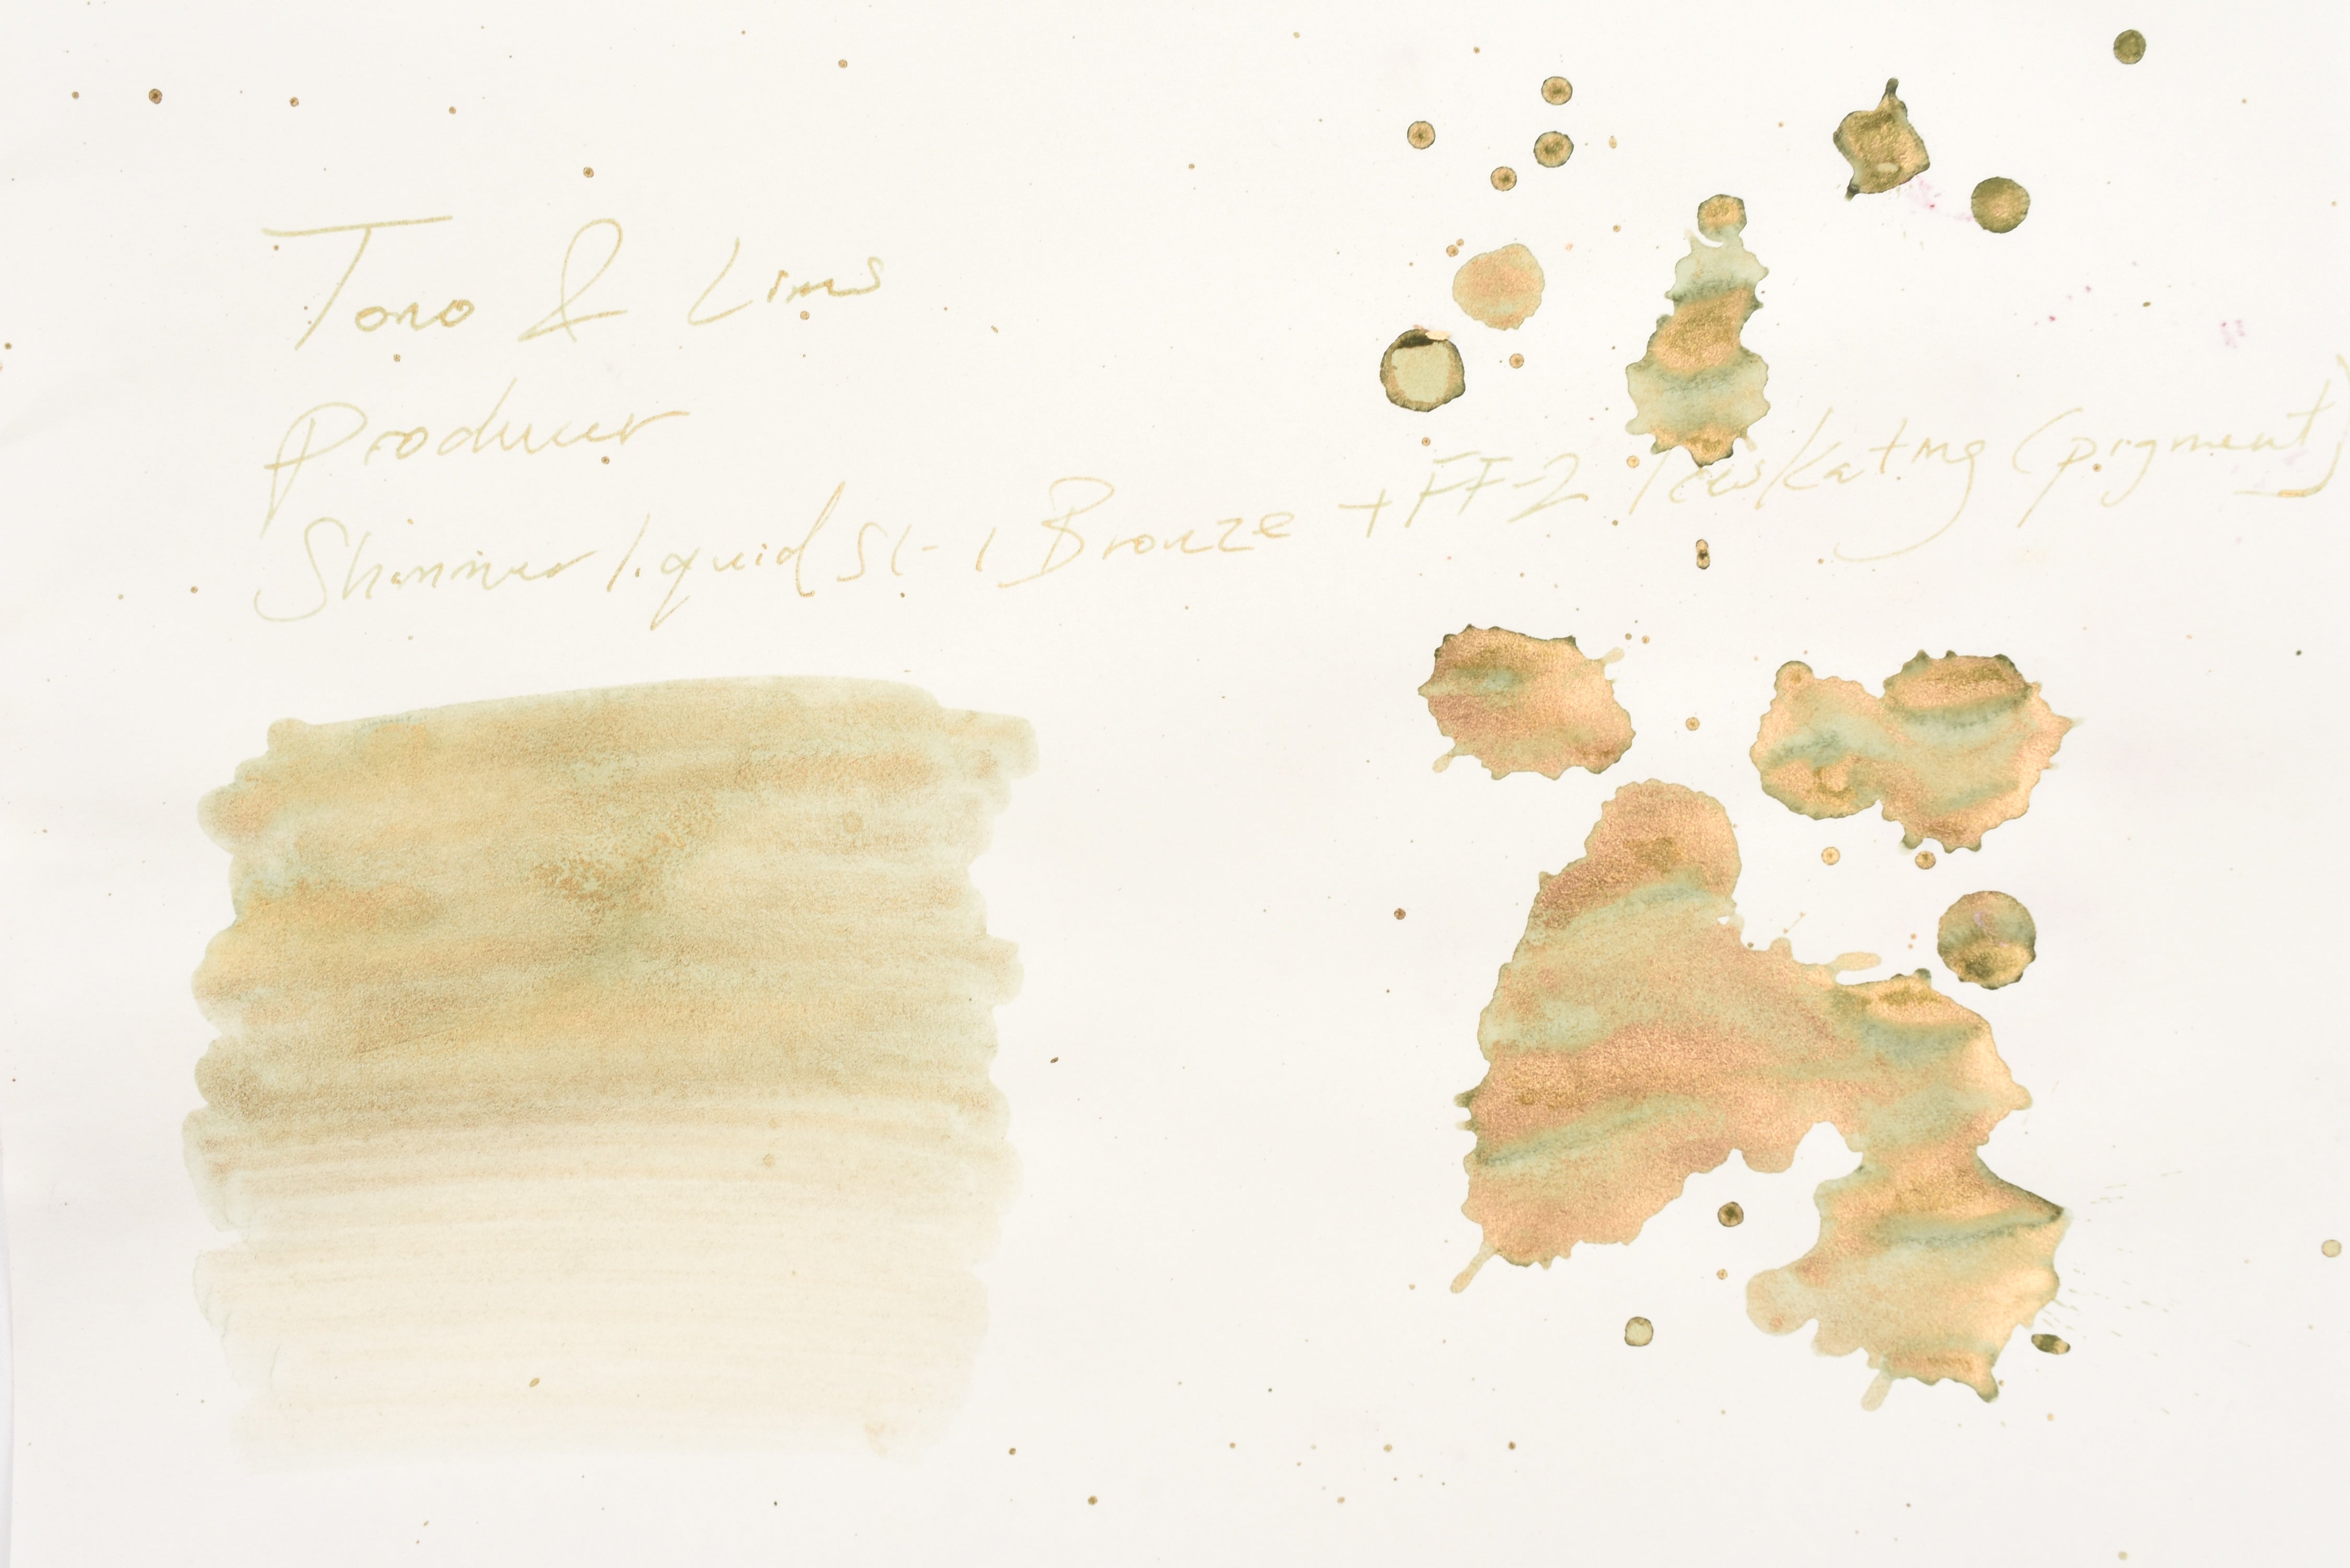 Tono & Lims
Producer
Shimmer liquid SL-1 Bronze + FF-2 Iceskating (pigment)